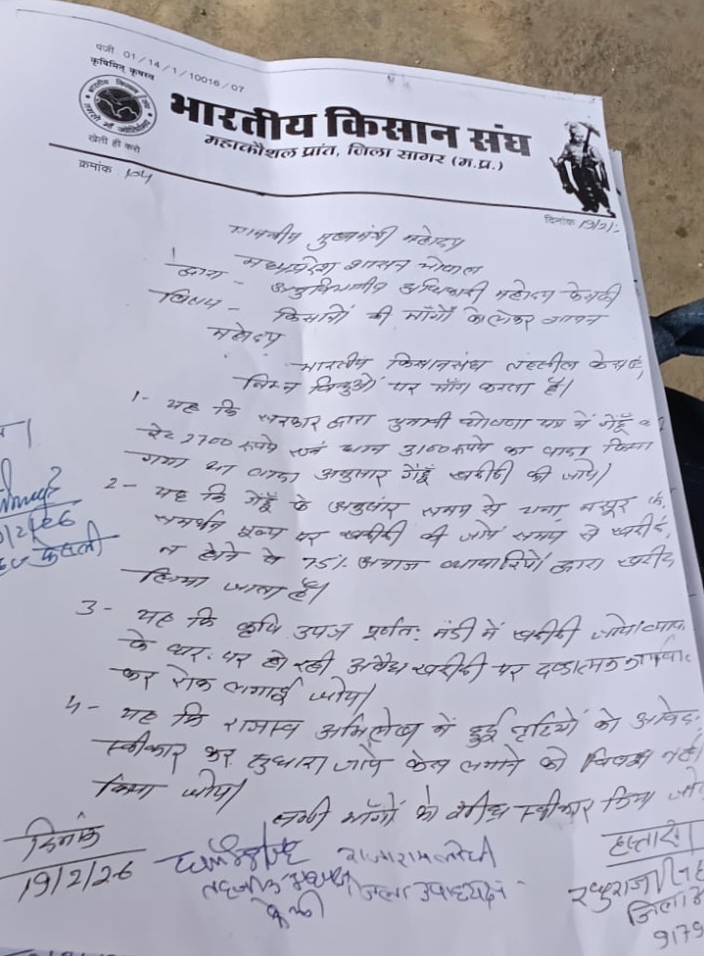 पंजी 01/14/1/10016/07
कृषिमित् कृषस्व
भारतीय किसान संघ
खेती ही करो
महाकौशल प्रांत, जिला सागर (म.प्र.)
क्रमांक 104
दिनांक 19/2/
माननीय मुख्यमंत्री महोदय
मध्यप्रदेश शासन भोपाल
द्वारा - अनुविभागीय अधिकारी महोदय केसली
विषय - किसानों की माँगों को लेकर ज्ञापन
महोदय
भारतीय किसान संघ तहसील
निम्न बिन्दुओं पर माँग करता है।
1- यह कि सरकार द्वारा चुनावी घोषणा पत्र में गेहूँ
रेट 2700 रूपये एवं धान 3100 रूपये का वादा किया
गया था वादा अनुसार गेहूँ खरीदी की जाये।
2- यह कि गेहूँ के अनुसार समय से चना मसूर
समर्थन मूल्य पर खरीदी की जाये समय से खरीदी
न होने से 75% अनाज व्यापारियों द्वारा खरीद
लिया जाता है।
3- यह कि कृषि उपज पूर्णत: मंडी में खरीदी जाये
के घर: पर हो रही अवैध खरीदी पर दण्डात्मक
कर रोक लगाई जाये।
4- यह कि राजस्व अभिलेख में हुई त्रुटियों को
स्वीकार कर सुधारा जाये केस लगाने को विवश नहीं
किया जाये।
सभी माँगों को शीघ्र स्वीकार किया
दिनांक
19/2/26
राजाराम
जिला उपाध्यक्ष
रघुराज सिंह
जिला
9179
केसली